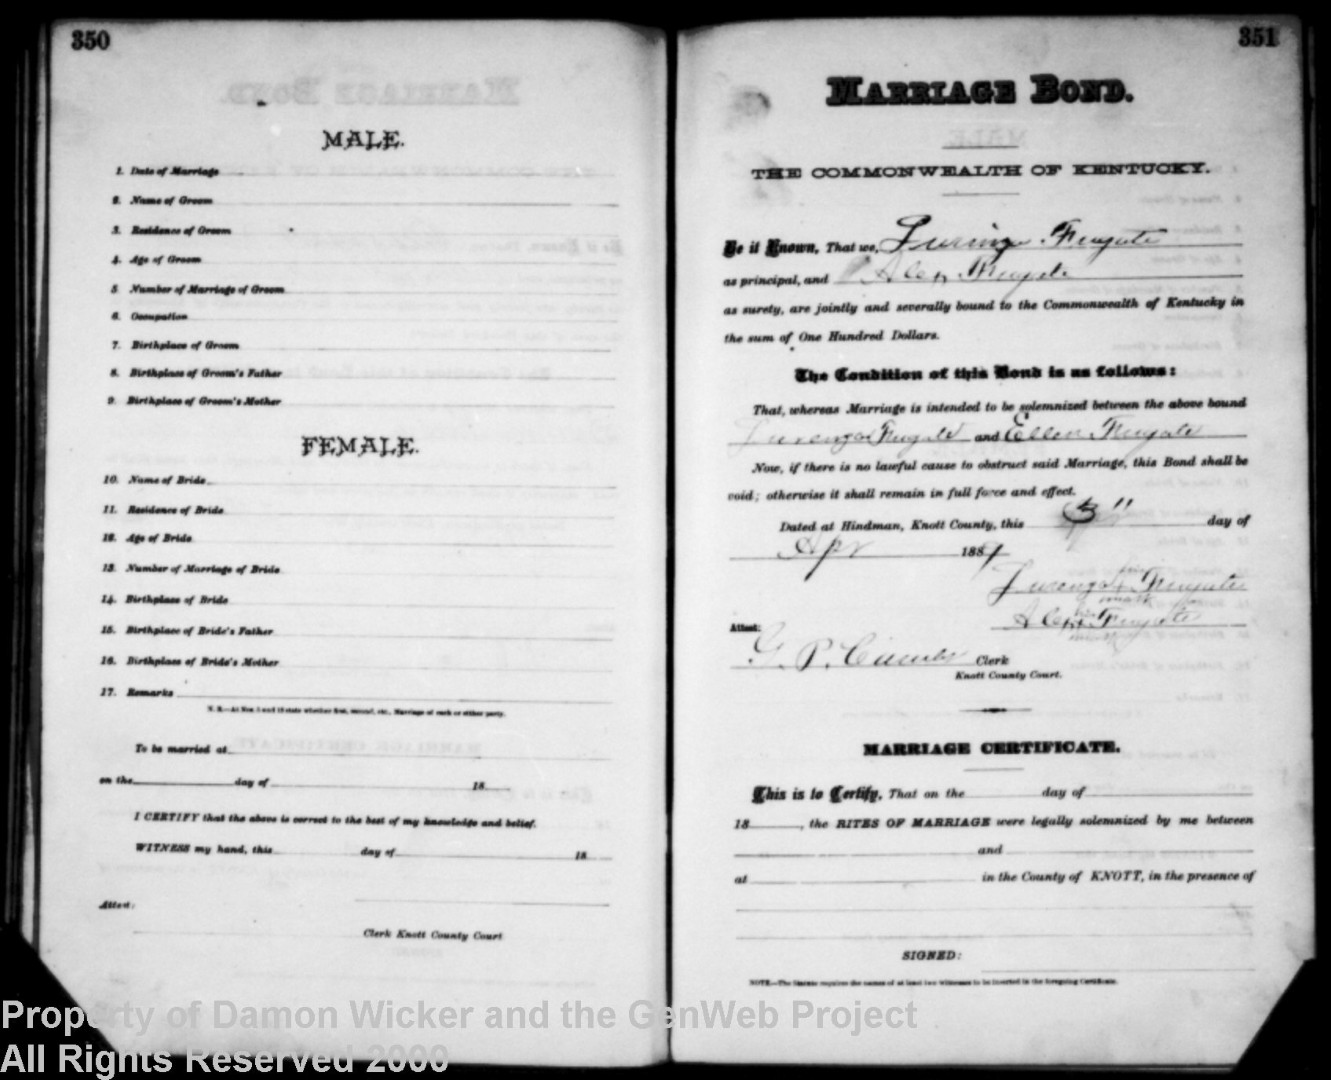 350
MALE.
1. Date of Marriage
2. Name of Groom
3. Residence of Groom
4. Age of Groom
5. Number of Marriage of Groom
6. Occupation
7. Birthplace of Groom
8. Birthplace of Groom's Father
9. Birthplace of Groom's Mother
FEMALE.
10. Name of Bride
11. Residence of Bride
12. Age of Bride
13. Number of Marriage of Bride
14. Birthplace of Bride
15. Birthplace of Bride's Father
16. Birthplace of Bride's Mother
17. Remarks
N. B.—At Nos. 5 and 13 state whether first, second, etc., Marriage of each or either party.
To be married at
on the day of 18
I CERTIFY that the above is correct to the best of my knowledge and belief.
WITNESS my hand, this day of 18
Attest:
Clerk Knott County Court
351
MARRIAGE BOND.
THE COMMONWEALTH OF KENTUCKY.
Be it Known, That we, Fugate
as principal, and Alex Fugate
as surety, are jointly and severally bound to the Commonwealth of Kentucky in
the sum of One Hundred Dollars.
The Condition of this Bond is as follows:
That, whereas Marriage is intended to be solemnized between the above bound
Fugate and Ellen Fugate
Now, if there is no lawful cause to obstruct said Marriage, this Bond shall be
void; otherwise it shall remain in full force and effect.
Dated at Hindman, Knott County, this 3" day of
Apr 1889
Fugate
mark
Alex Fugate
Attest:
G. P. Combs Clerk
Knott County Court.
MARRIAGE CERTIFICATE.
This is to Certify, That on the day of
18 , the RITES OF MARRIAGE were legally solemnized by me between
and
at in the County of KNOTT, in the presence of
SIGNED:
NOTE—The Statute requires the names of at least two witnesses to be inserted in the foregoing Certificate.
Property of Damon Wicker and the GenWeb Project
All Rights Reserved 2000